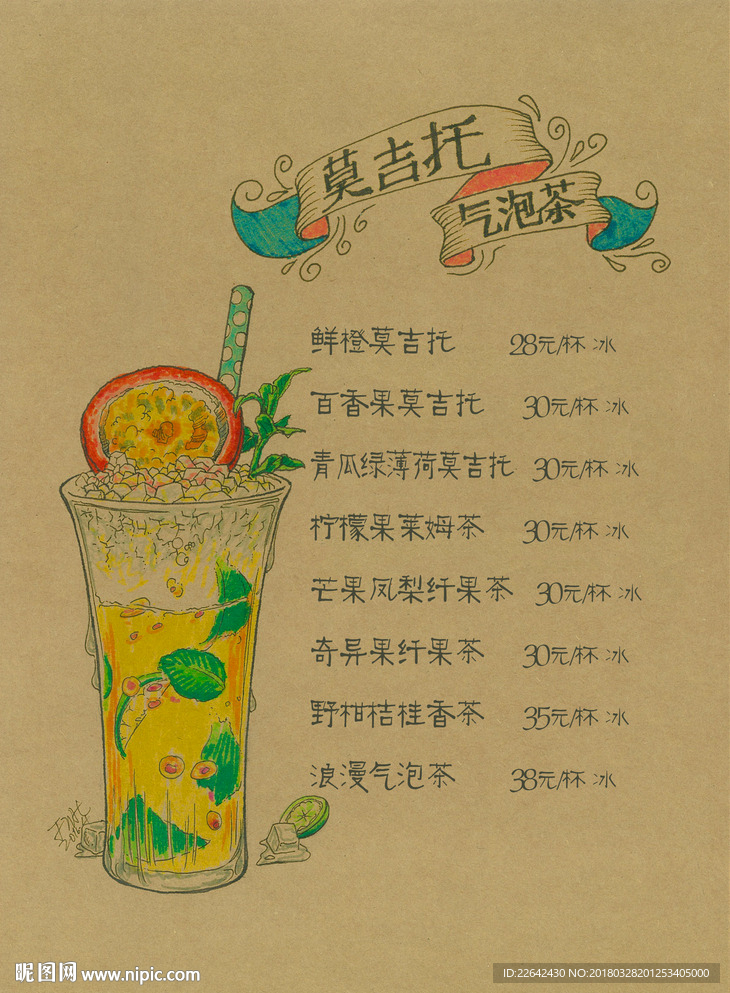 莫吉托
气泡茶
鲜橙莫吉托 28元/杯 冰
百香果莫吉托 30元/杯 冰
青瓜绿薄荷莫吉托 30元/杯 冰
柠檬果莱姆茶 30元/杯 冰
芒果凤梨纤果茶 30元/杯 冰
奇异果纤果茶 30元/杯 冰
野柑桔桂香茶 35元/杯 冰
浪漫气泡茶 38元/杯 冰
昵图网 www.nipic.com
ID:22642430 NO:20180328201253405000